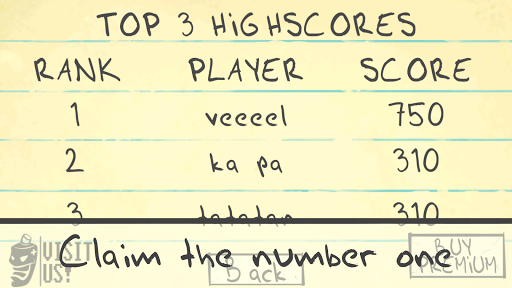 TOP 3 HiGHSCORES
RANK PLAYER SCORE
1 veeeel 750
2 ka pa 310
3 tatatan 310
Claim the number one
VISIT US!
Back
BUY PREMIUM